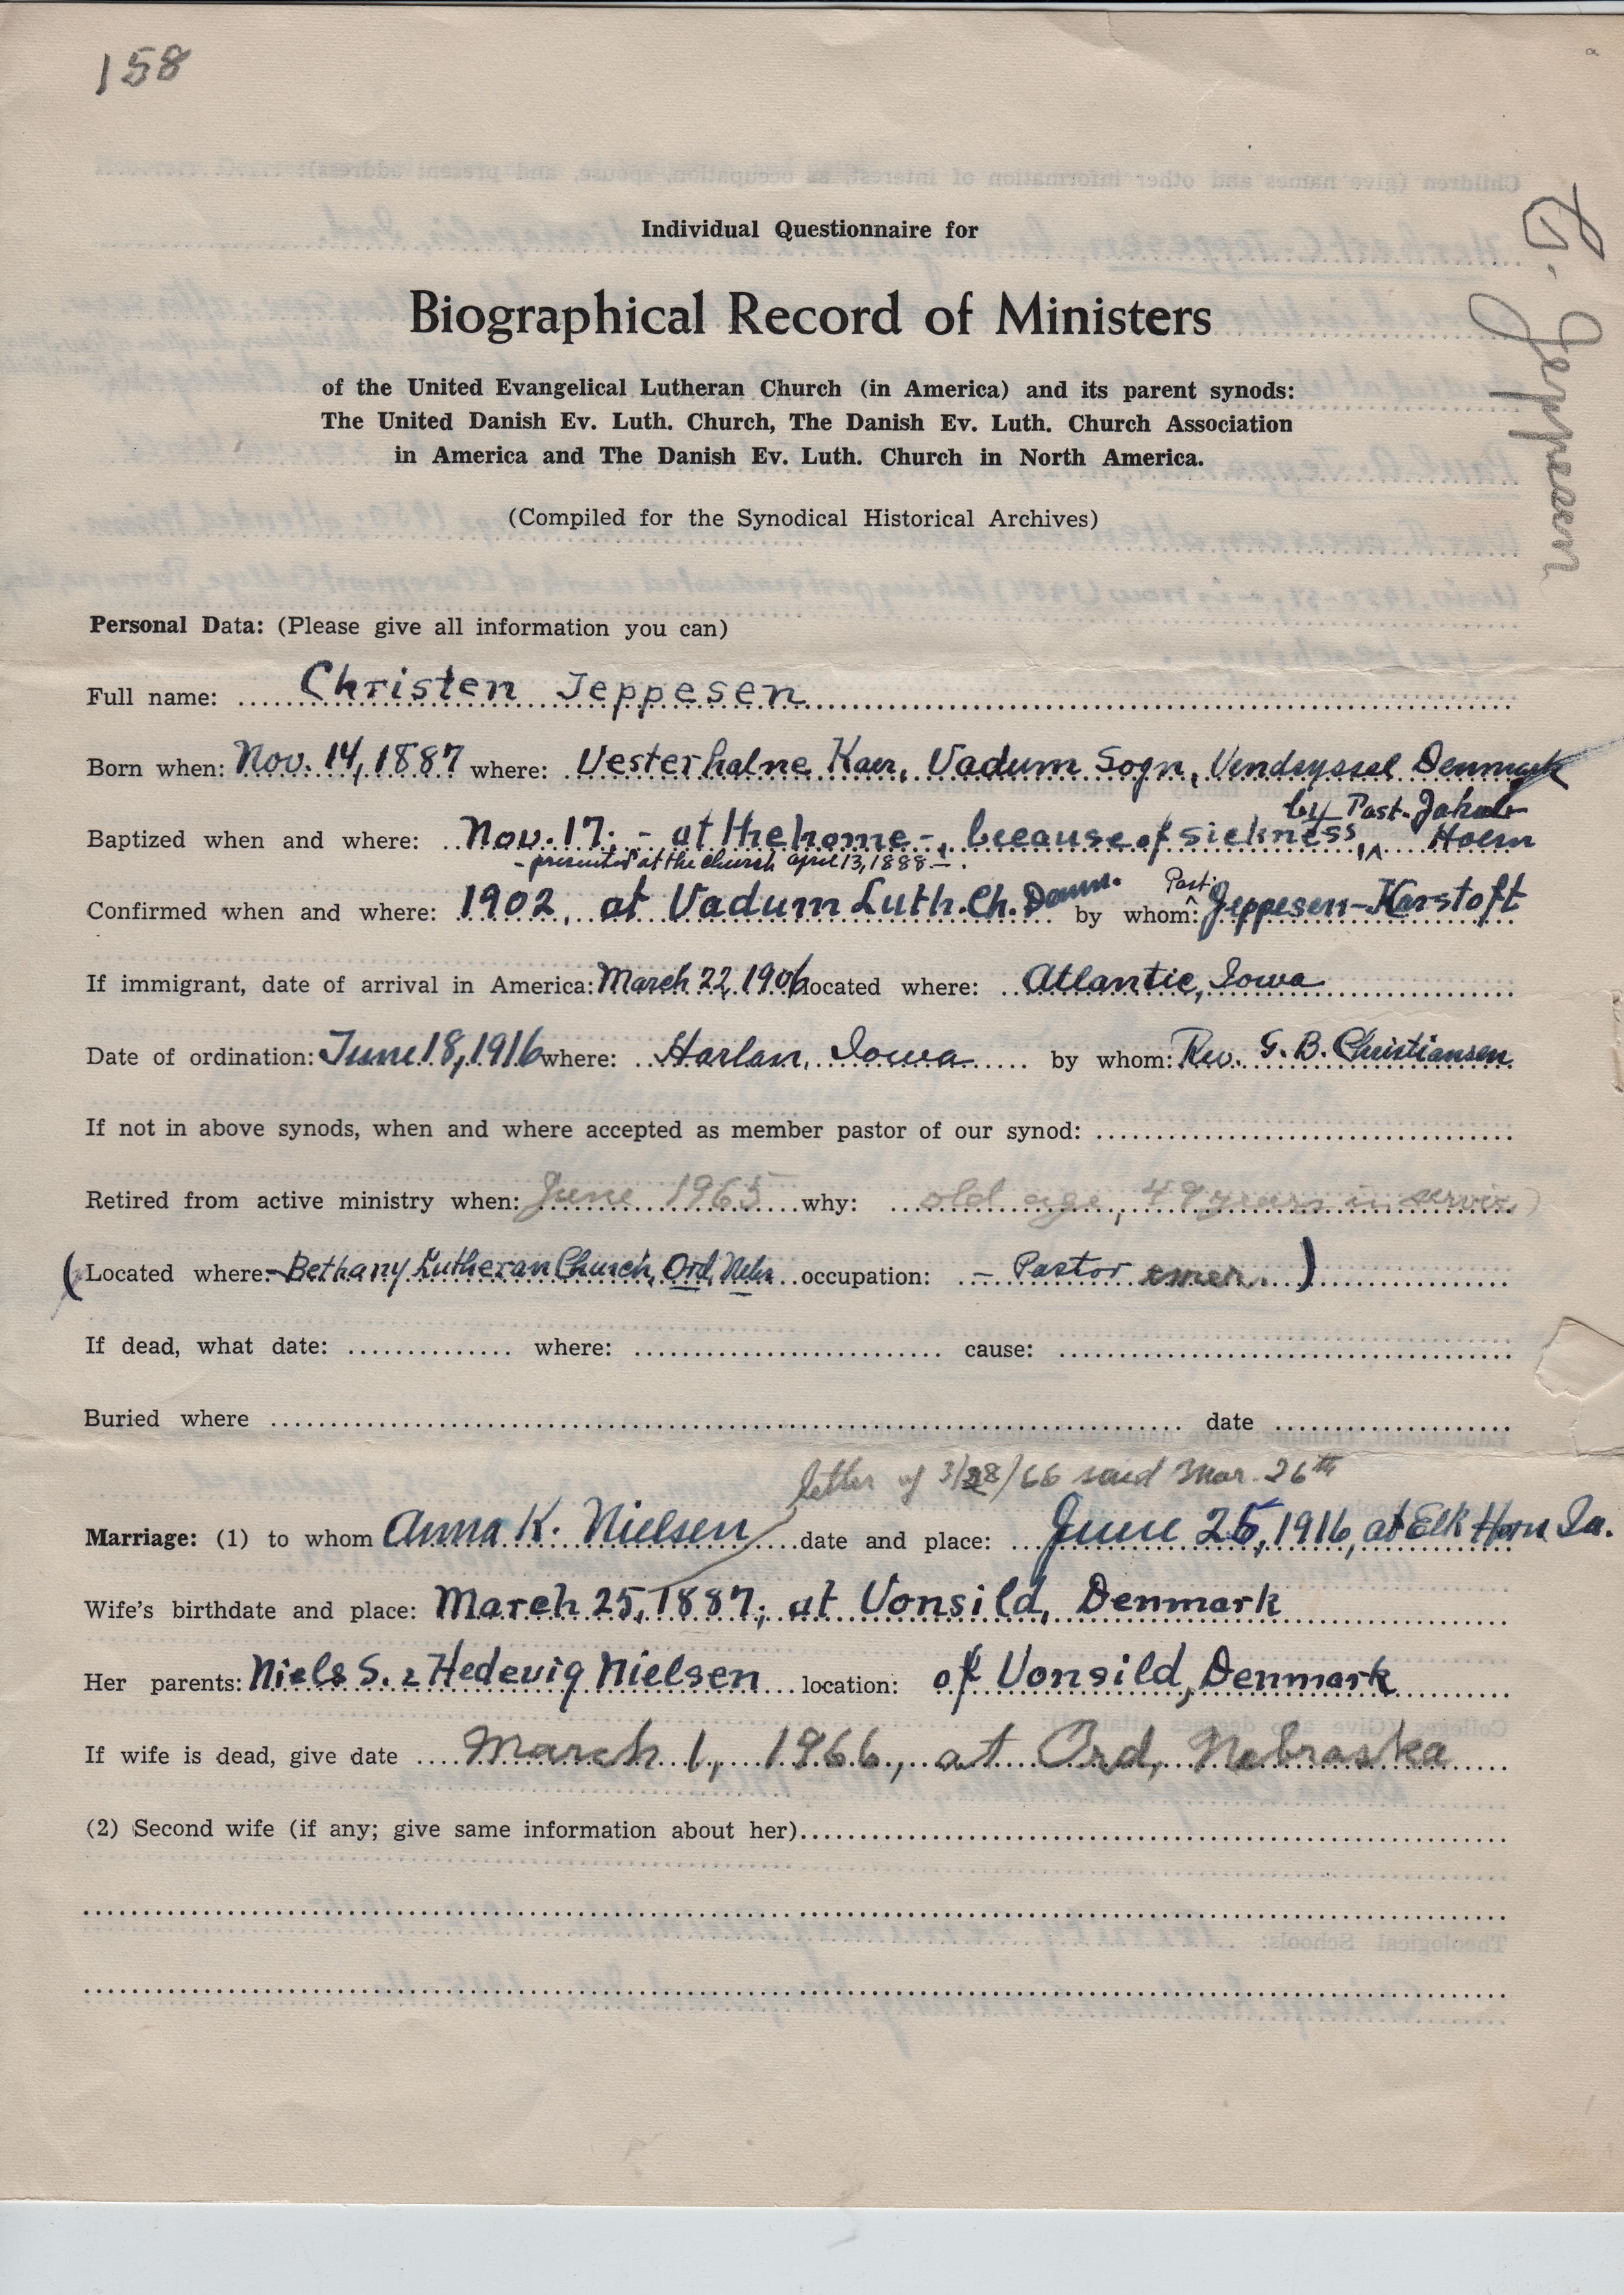 158
C. Jeppesen
Individual Questionnaire for
Biographical Record of Ministers
of the United Evangelical Lutheran Church (in America) and its parent synods:
The United Danish Ev. Luth. Church, The Danish Ev. Luth. Church Association
in America and The Danish Ev. Luth. Church in North America.
(Compiled for the Synodical Historical Archives)
Personal Data: (Please give all information you can)
Full name: Christen Jeppesen
Born when: Nov. 14, 1887 where: Vesterhalne Kaer, Vadum Sogn, Vendsyssel Denmark
by Past. Jakob
Baptized when and where: Nov. 17; - at the home -, because of sickness, Holm
- presented at the church april 13, 1888 -.
Confirmed when and where: 1902, at Vadum Luth. Ch. Denm. by whom: Past. Jeppesen-Karstoft
If immigrant, date of arrival in America: March 22, 1906 located where: Atlantic, Iowa
Date of ordination: June 18, 1916 where: Harlan, Iowa by whom: Rev. G. B. Christiansen
If not in above synods, when and where accepted as member pastor of our synod:
Retired from active ministry when: June 1965 why: old age, 49 years in service
(Located where: - Bethany Lutheran Church, Ord, Nebr. occupation: - Pastor emer. )
If dead, what date: where: cause:
Buried where date
letter of 3/28/66 said Mar. 26th
Marriage: (1) to whom Anna K. Nielsen date and place: June 25, 1916, at Elk Horn Ia.
Wife's birthdate and place: March 25, 1887; at Vonsild, Denmark
Her parents: Niels S. & Hedevig Nielsen location: of Vonsild, Denmark
If wife is dead, give date March 1, 1966, at Ord, Nebraska
(2) Second wife (if any; give same information about her)